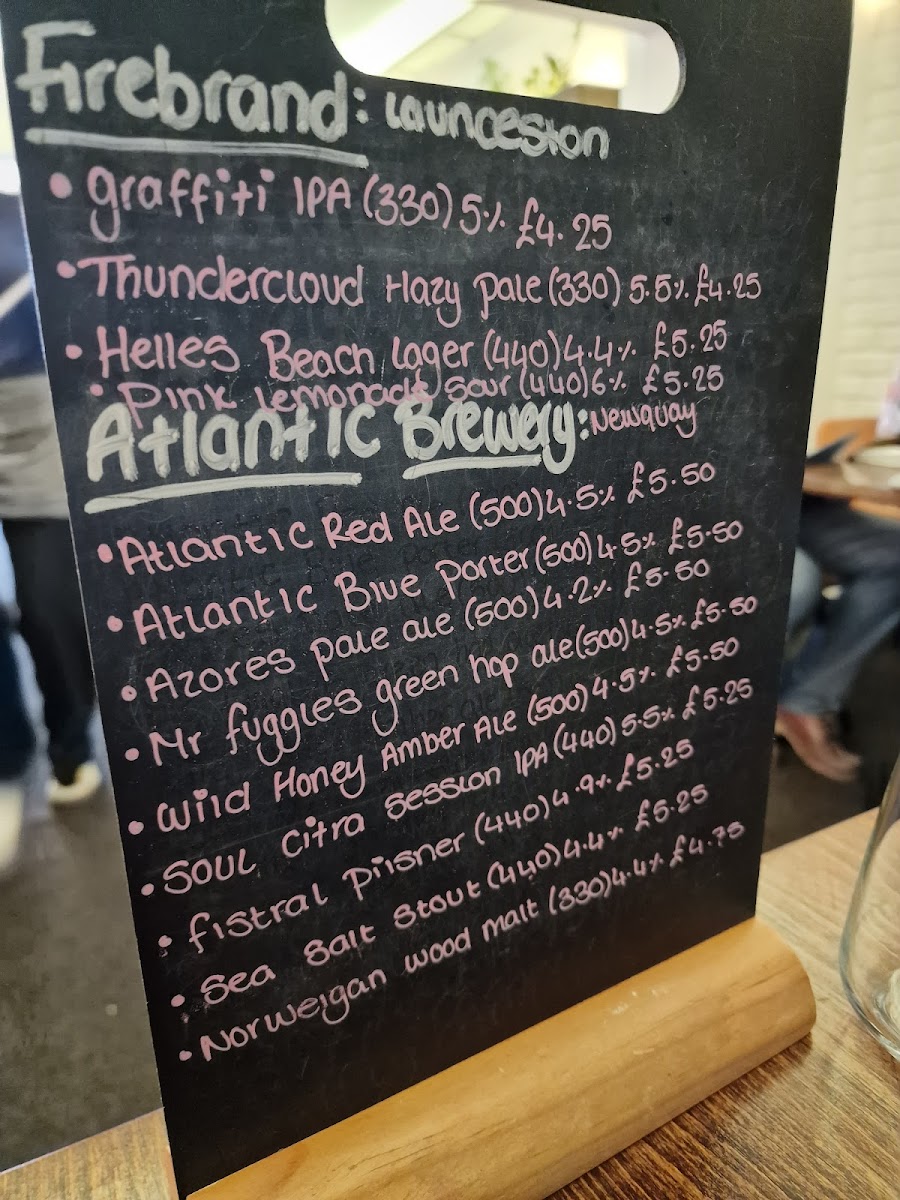 Firebrand: Launceston
• graffiti IPA (330) 5% £4.25
• Thundercloud Hazy pale (330) 5.5% £4.25
• Helles Beach lager (440) 4.4% £5.25
• Pink lemonade sour (440) 6% £5.25
Atlantic Brewery: Newquay
• Atlantic Red Ale (500) 4.5% £5.50
• Atlantic Blue porter (500) 4.5% £5.50
• Azores pale ale (500) 4.2% £5.50
• Mr fuggles green hop ale (500) 4.5% £5.50
• Wild Honey Amber Ale (500) 4.5% £5.50
• SOUL citra session IPA (440) 5.5% £5.25
• fistral pilsner (440) 4.9% £5.25
• Sea Salt Stout (440) 4.4% £5.25
• Norweigan wood malt (330) 4.4% £4.75